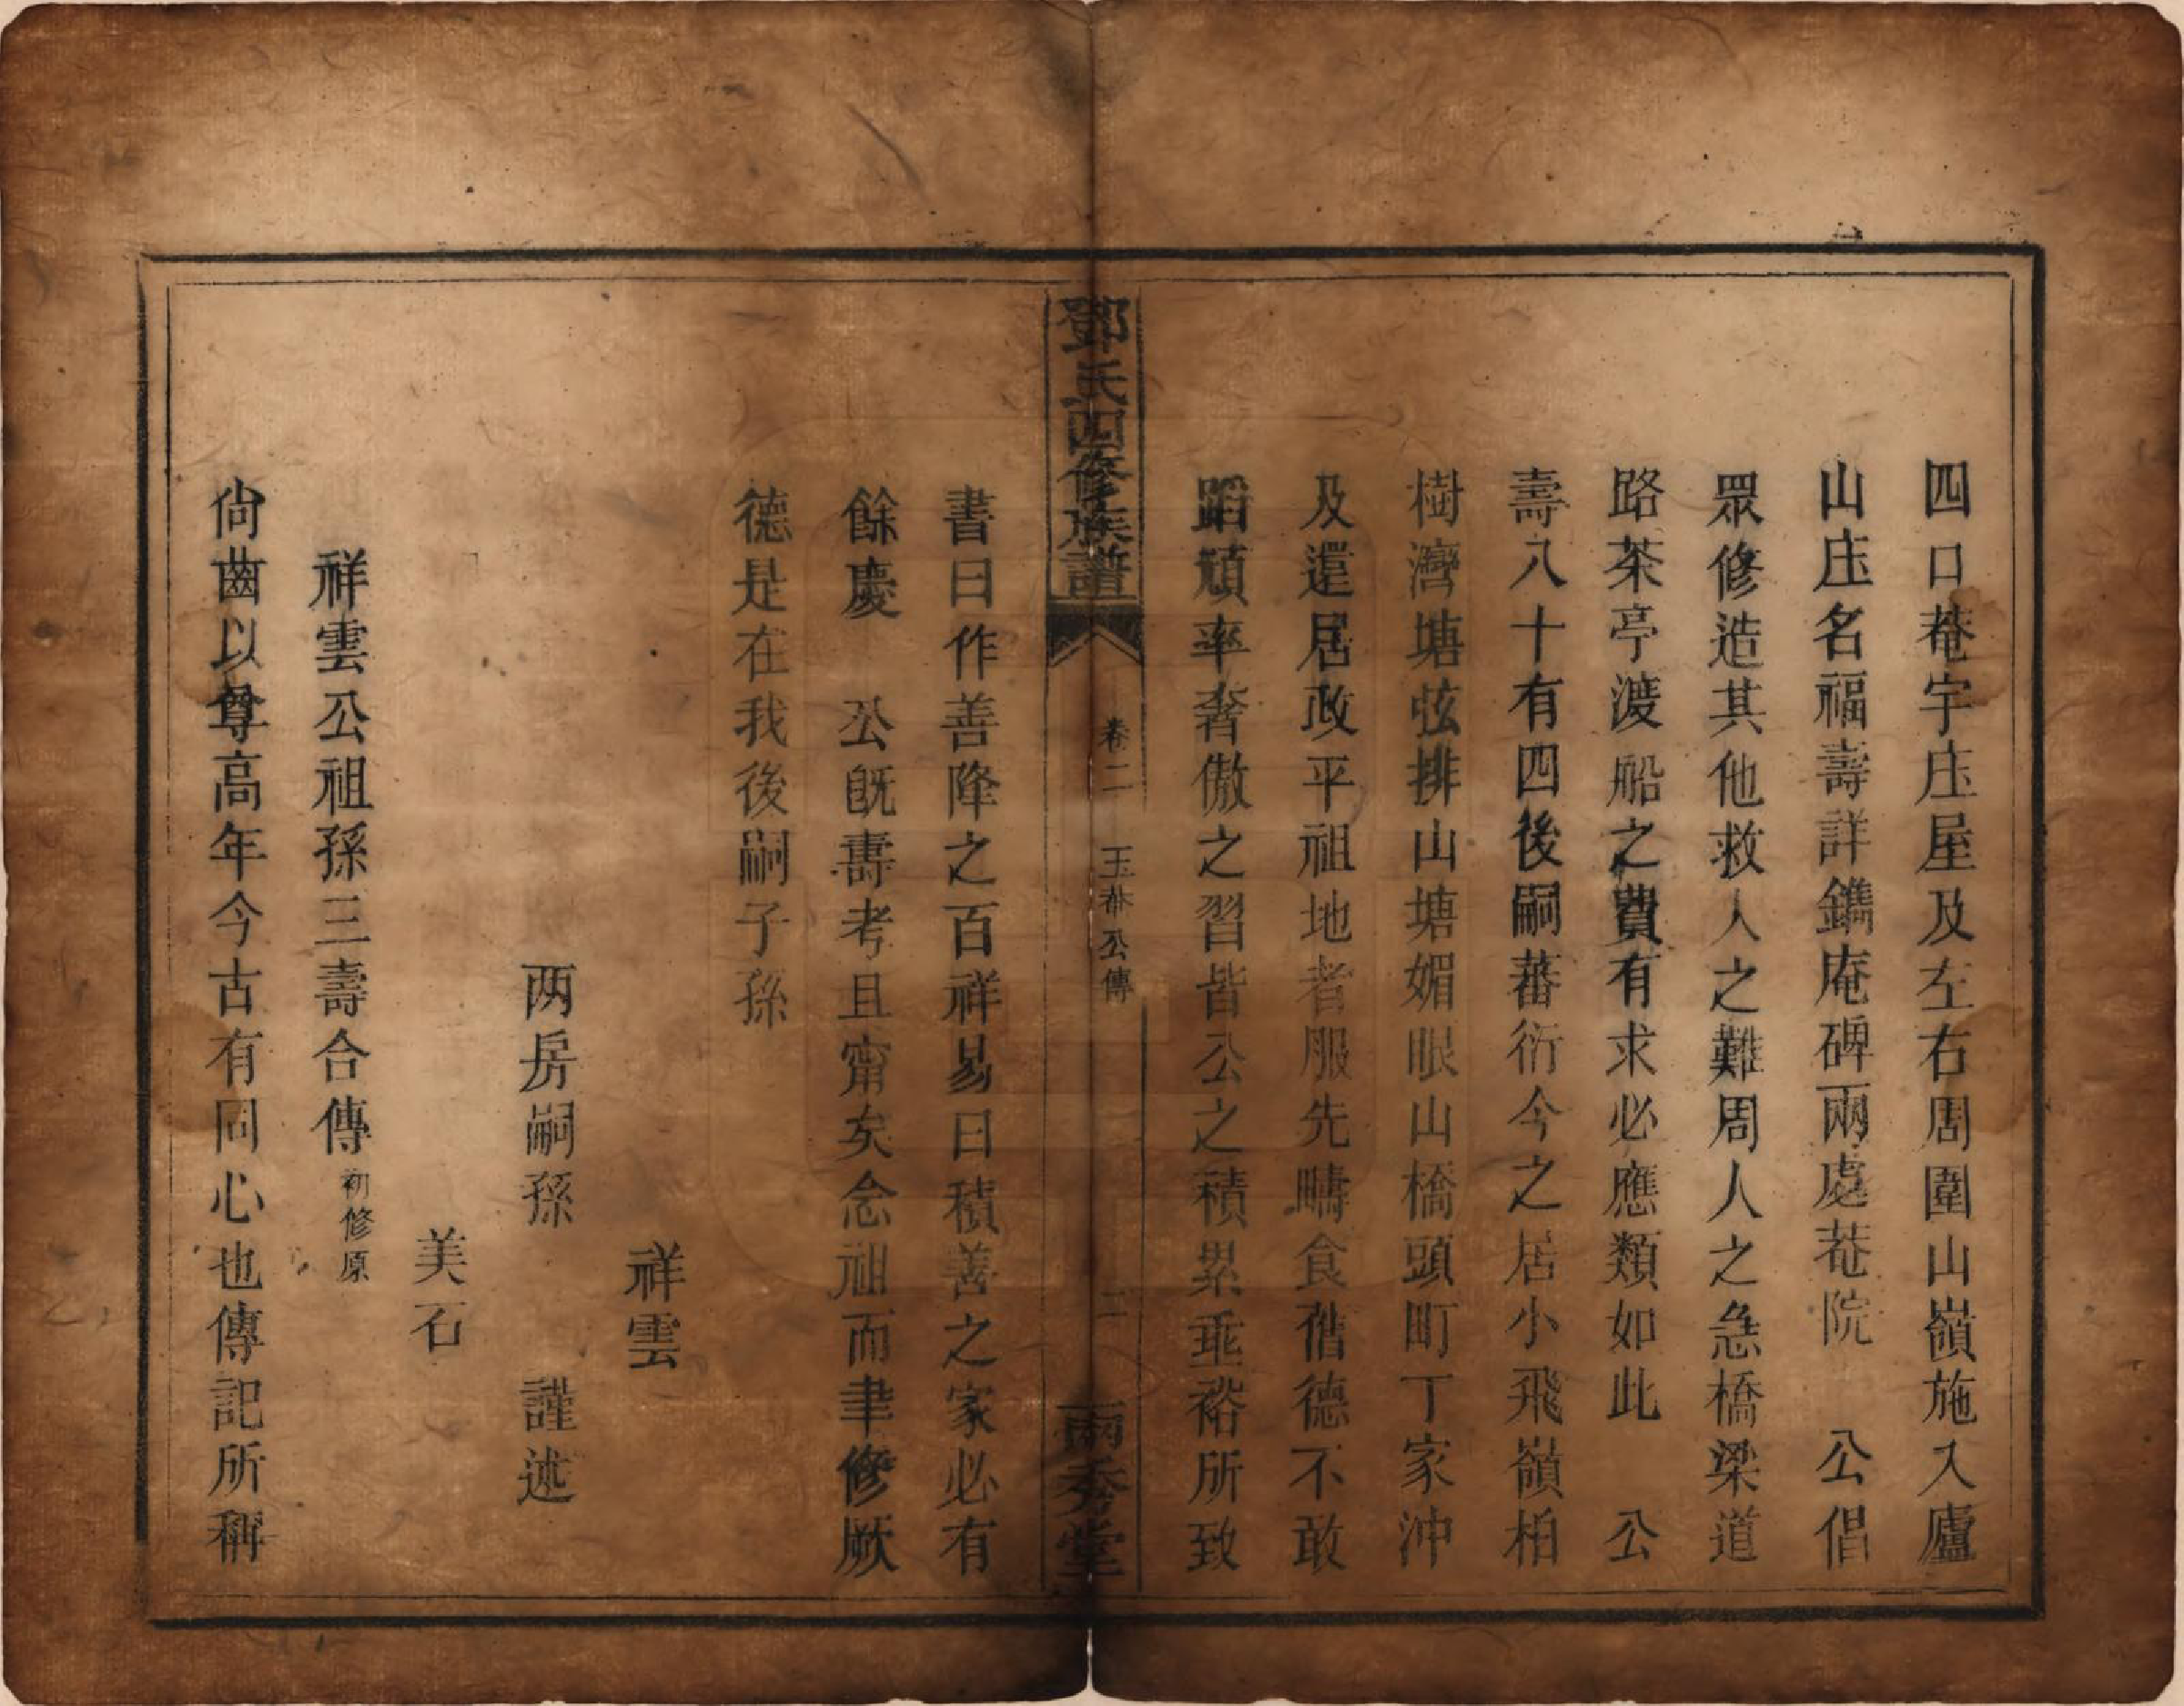 四口菴宇庄屋及左右周圍山嶺施入廬
山庄名福壽詳鐫庵碑兩處菴院　公倡
眾修造其他救人之難周人之急橋梁道
路茶亭渡船之費有求必應類如此　公
壽八十有四後嗣蕃衍今之居小飛嶺柏
樹灣塘弦排山塘媚眼山橋頭町丁家沖
及還居政平祖地者服先疇食舊德不敢
蹈頑率奢傲之習皆公之積累垂裕所致
鄧氏四修族譜
卷二　玉菾公傳　二
兩秀堂
書曰作善降之百祥易曰積善之家必有
餘慶　公既壽考且甯矣念祖而聿修厥
德是在我後嗣子孫
祥雲
两房嗣孫　謹述
美石
祥雲公祖孫三壽合傳初修原
尙齒以尊高年今古有同心也傳記所稱